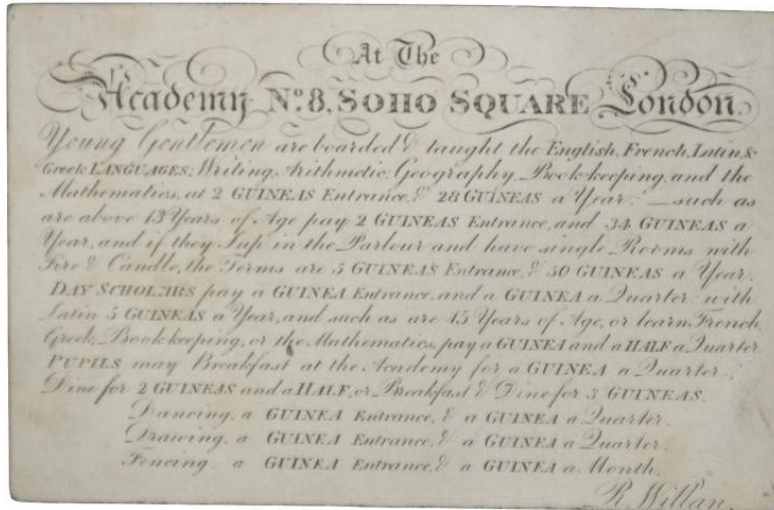 At The
Academy Nº 8, SOHO SQUARE London.
Young Gentlemen are boarded & taught the English, French, Latin &
Greek LANGUAGES; Writing, Arithmetic, Geography, Book-keeping, and the
Mathematics, at 2 GUINEAS Entrance, & 28 GUINEAS a Year: — such as
are above 13 Years of Age pay 2 GUINEAS Entrance, and 34 GUINEAS a
Year, and if they Sup in the Parlour and have single Rooms with
Fire & Candle, the Terms are 5 GUINEAS Entrance, & 50 GUINEAS a Year.
DAY SCHOLARS pay a GUINEA Entrance, and a GUINEA a Quarter: with
Latin 5 GUINEAS a Year, and such as are 13 Years of Age, or learn French,
Greek, Book-keeping, or the Mathematics, pay a GUINEA and a HALF a Quarter
PUPILS may Breakfast at the Academy for a GUINEA a Quarter:
Dine for 2 GUINEAS and a HALF, or Breakfast & Dine for 3 GUINEAS.
Dancing, a GUINEA Entrance, & a GUINEA a Quarter.
Drawing, a GUINEA Entrance, & a GUINEA a Quarter.
Fencing, a GUINEA Entrance, & a GUINEA a Month.
R. Willan.